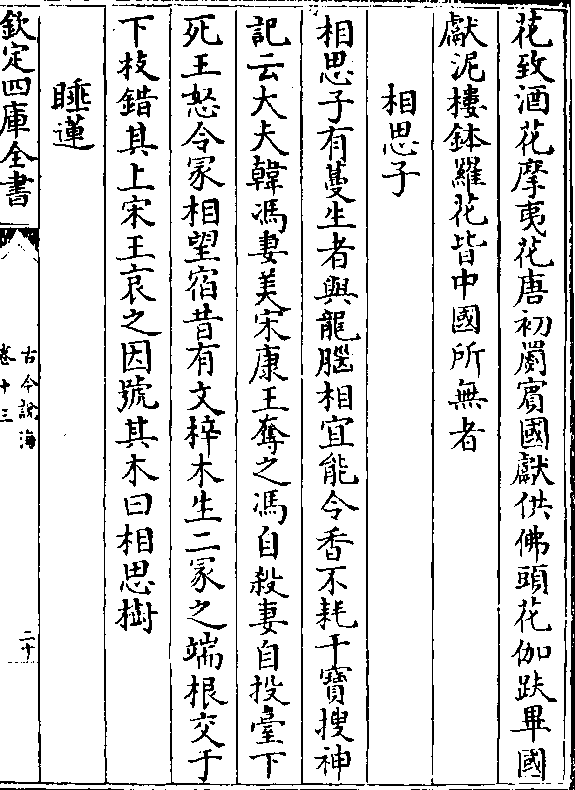 花致酒花摩夷花唐初罽賓國獻供佛頭花伽趺畢國
獻泥樓鉢羅花皆中國所無者
相思子
相思子有蔓生者與龍腦相宜能令香不耗干寳搜神
記云大夫韓馮妻美宋康王奪之馮自殺妻自投臺下
死王怒令冢相望宿昔有文梓木生二冢之端根交于
下枝錯其上宋王哀之因號其木曰相思樹
睡蓮
欽定四庫全書
古今說海
卷十三
二十